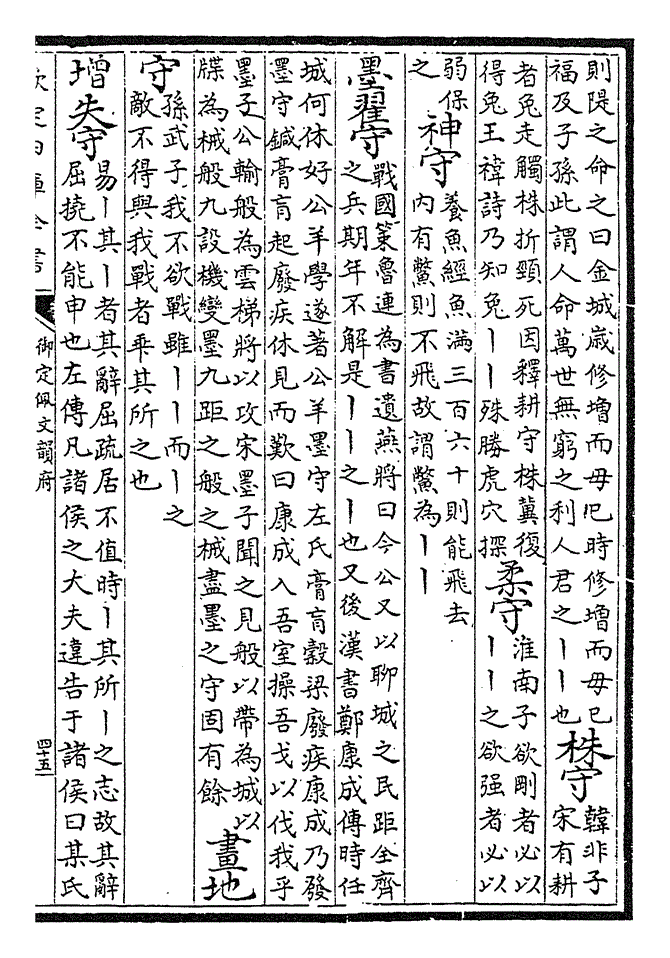 則隄之命之曰金城歲修增而毋巳時修增而毋巳
福及子孫此謂人命萬世無窮之利人君之丨丨也
株守
韓非子
宋有耕
者兔走觸株折頸死因釋耕守株冀復
得兔王禕詩乃知兔丨丨殊勝虎穴探
柔守
淮南子欲剛者必以
丨丨之欲强者必以
弱保
之
神守
養魚經魚滿三百六十則能飛去
内有鱉則不飛故謂鱉為丨丨
墨翟守
戰國策魯連為書遺燕將曰今公又以聊城之民距全齊
之兵期年不解是丨丨之丨也又後漢書鄭康成傳時任
城何休好公羊學遂著公羊墨守左氏膏肓穀梁廢疾康成乃發
墨守鍼膏肓起廢疾休見而歎曰康成入吾室操吾戈以伐我乎
墨子公輸般為雲梯將以攻宋墨子聞之見般以帶為城以
牒為械般九設機變墨九距之般之械盡墨之守固有餘
畫地
守
孫武子我不欲戰雖丨丨而丨之
敵不得與我戰者乖其所之也
增
失守
易丨其丨者其辭屈疏居不值時丨其所丨之志故其辭
屈撓不能申也左傳凡諸侯之大夫違告于諸侯曰某氏
欽定四庫全書
御定佩文韻府
四十五